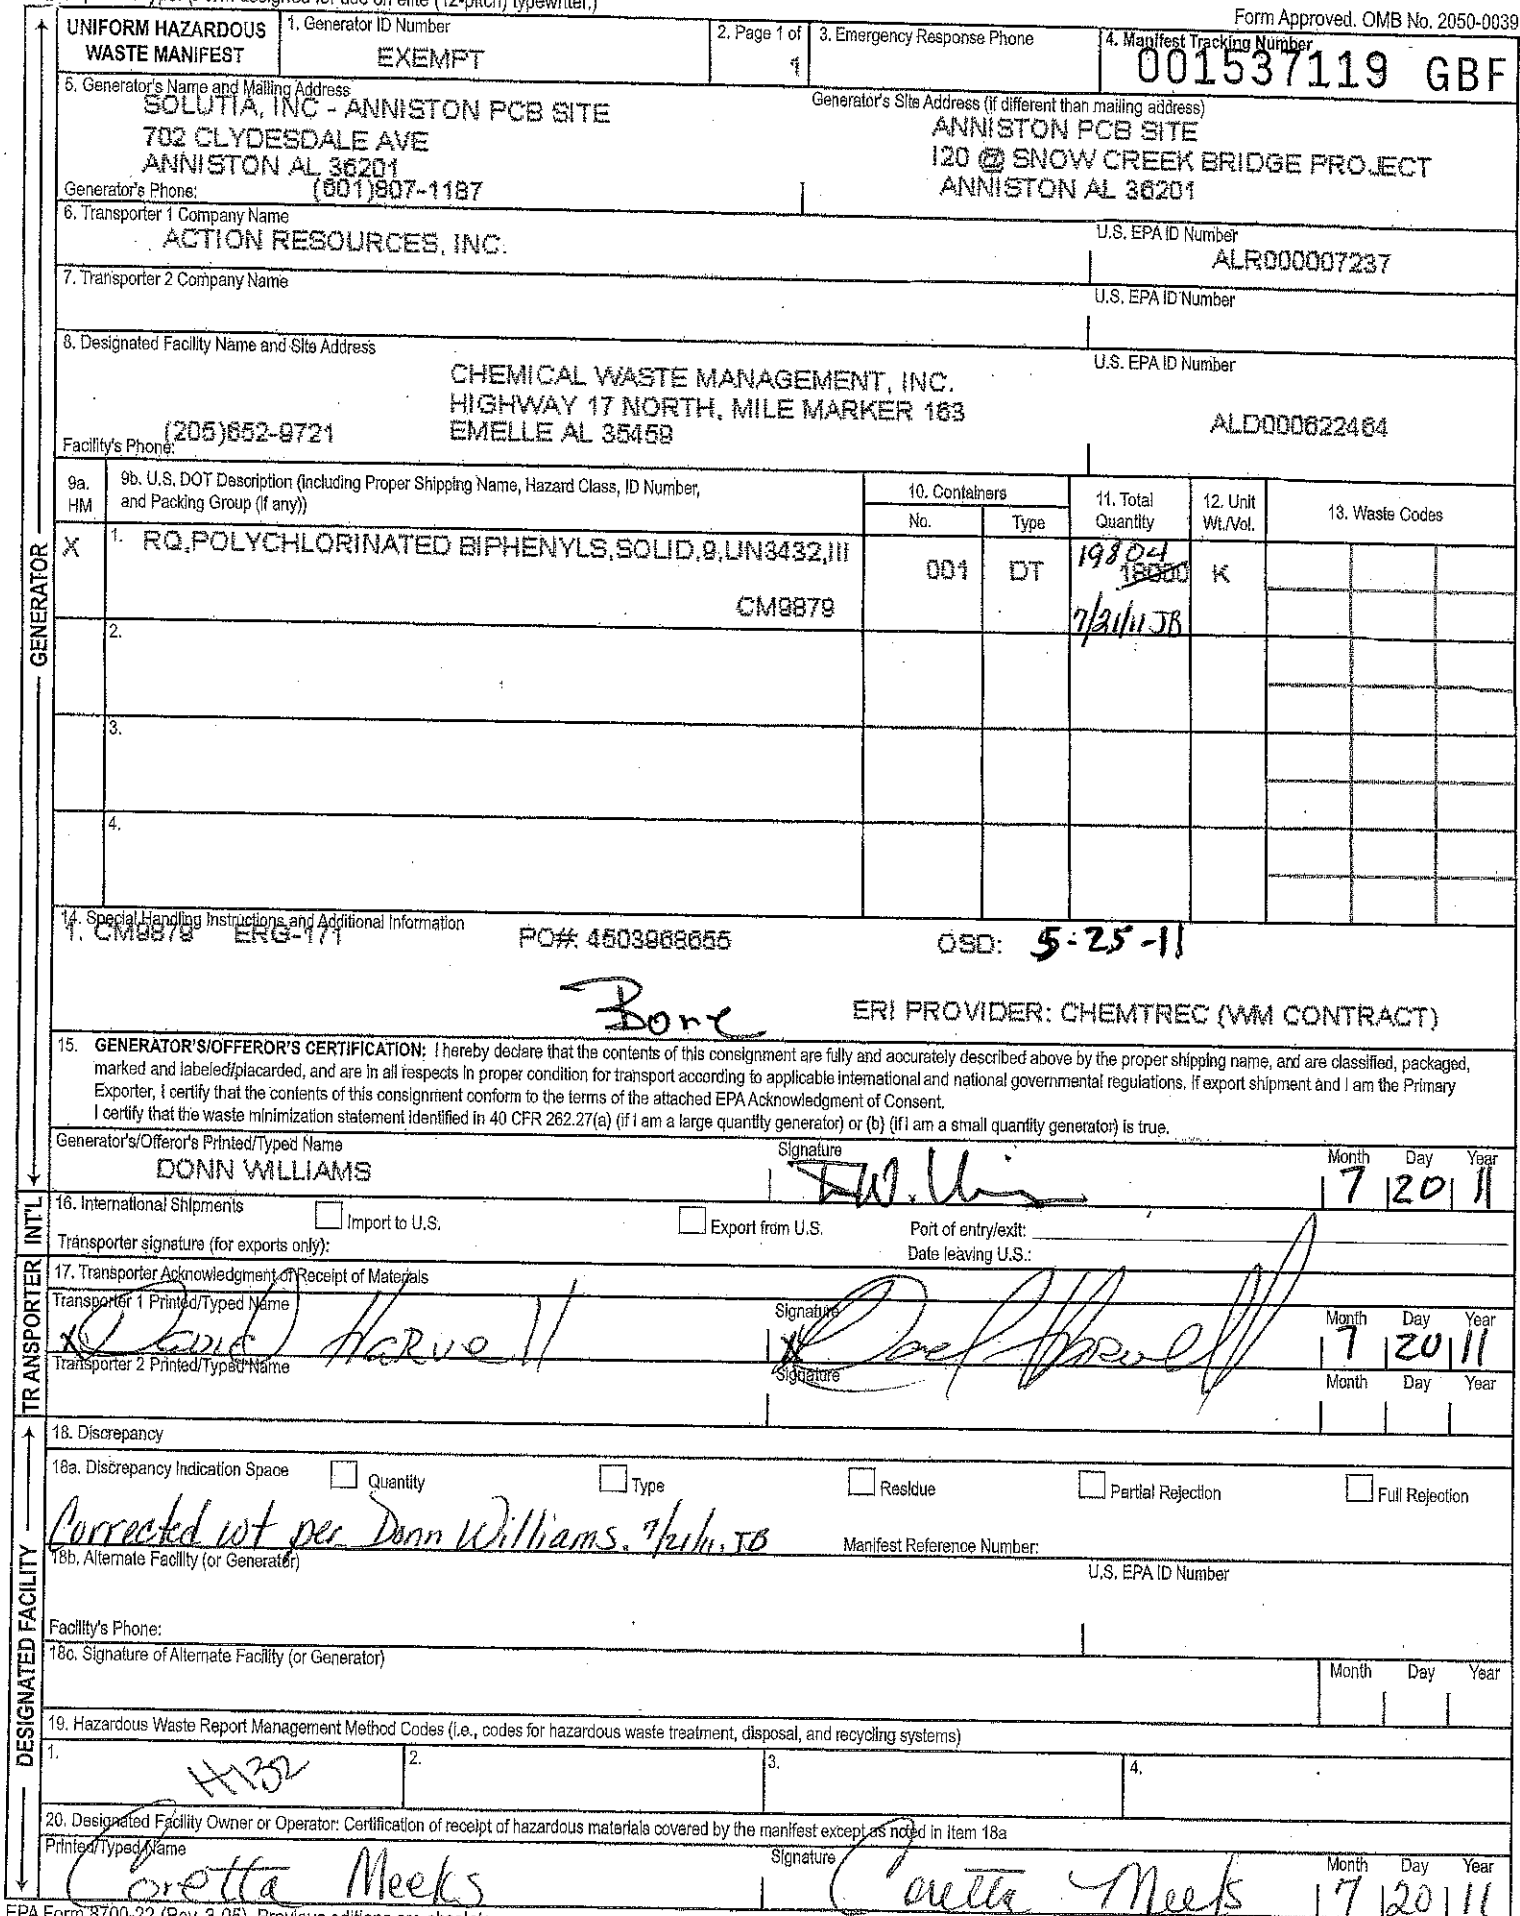 Form Approved. OMB No. 2050-0039
UNIFORM HAZARDOUS WASTE MANIFEST
1. Generator ID Number
EXEMPT
2. Page 1 of
1
3. Emergency Response Phone
4. Manifest Tracking Number
001537119 GBF
5. Generator's Name and Mailing Address
SOLUTIA, INC - ANNISTON PCB SITE
702 CLYDESDALE AVE
ANNISTON AL 36201
Generator's Phone: (601)807-1187
Generator's Site Address (if different than mailing address)
ANNISTON PCB SITE
I20 @ SNOW CREEK BRIDGE PROJECT
ANNISTON AL 36201
6. Transporter 1 Company Name
ACTION RESOURCES, INC.
U.S. EPA ID Number
ALR000007237
7. Transporter 2 Company Name
U.S. EPA ID Number
8. Designated Facility Name and Site Address
CHEMICAL WASTE MANAGEMENT, INC.
HIGHWAY 17 NORTH, MILE MARKER 163
EMELLE AL 35459
Facility's Phone: (205)652-9721
U.S. EPA ID Number
ALD000622464
9a. HM
9b. U.S. DOT Description (including Proper Shipping Name, Hazard Class, ID Number, and Packing Group (if any))
10. Containers
No.
Type
11. Total Quantity
12. Unit Wt./Vol.
13. Waste Codes
X
1. RQ,POLYCHLORINATED BIPHENYLS,SOLID,9,UN3432,III
CM9879
001
DT
19804
18000
7/21/11 JB
K
2.
3.
4.
14. Special Handling Instructions and Additional Information
1. CM9879 ERG-171 PO#: 4503968655 OSD: 5-25-11
Bone
ERI PROVIDER: CHEMTREC (WM CONTRACT)
15. GENERATOR'S/OFFEROR'S CERTIFICATION: I hereby declare that the contents of this consignment are fully and accurately described above by the proper shipping name, and are classified, packaged,
marked and labeled/placarded, and are in all respects in proper condition for transport according to applicable international and national governmental regulations. If export shipment and I am the Primary
Exporter, I certify that the contents of this consignment conform to the terms of the attached EPA Acknowledgment of Consent.
I certify that the waste minimization statement identified in 40 CFR 262.27(a) (if I am a large quantity generator) or (b) (if I am a small quantity generator) is true.
Generator's/Offeror's Printed/Typed Name
DONN WILLIAMS
Signature
Month Day Year
7 20 11
16. International Shipments
Import to U.S.
Export from U.S.
Port of entry/exit:
Transporter signature (for exports only):
Date leaving U.S.:
17. Transporter Acknowledgment of Receipt of Materials
Transporter 1 Printed/Typed Name
X David Harvell
Signature
X
Month Day Year
7 20 11
Transporter 2 Printed/Typed Name
Signature
Month Day Year
18. Discrepancy
18a. Discrepancy Indication Space
Quantity
Type
Residue
Partial Rejection
Full Rejection
Corrected wt per Donn Williams. 7/21/11. JB
Manifest Reference Number:
18b. Alternate Facility (or Generator)
U.S. EPA ID Number
Facility's Phone:
18c. Signature of Alternate Facility (or Generator)
Month Day Year
19. Hazardous Waste Report Management Method Codes (i.e., codes for hazardous waste treatment, disposal, and recycling systems)
1. H132
2.
3.
4.
20. Designated Facility Owner or Operator: Certification of receipt of hazardous materials covered by the manifest except as noted in Item 18a
Printed/Typed Name
Coretta Meeks
Signature
Coretta Meeks
Month Day Year
7 20 11
GENERATOR
INT'L
TRANSPORTER
DESIGNATED FACILITY